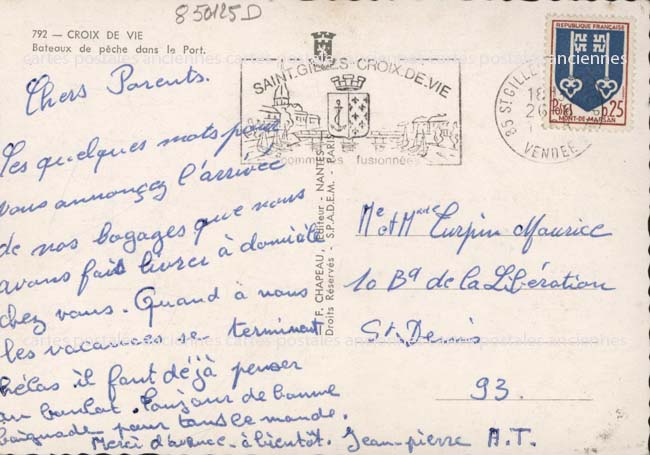 850125D
792 — CROIX DE VIE
Bateaux de pêche dans le Port.
cartes postales anciennes cartes postales anciennes cartes postales anciennes
Chers Parents.
Ces quelques mots pour
vous annonçez l'arrivée
de nos bagages que nous
avons fait livrer à domicile
chez vous. Quand à nous
les vacances se terminent
hélas il faut déjà penser
au boulot. Toujours de bonne
baignade pour tout le monde.
Merci d'avance - à bientôt. Jean-pierre A.T.
SAINT.GILLES-CROIX.DE.VIE
communes fusionnées
F. CHAPEAU, Editeur - NANTES
Droits Réservés - S.P.A.D.E.M. - PARIS
85 ST GILLES
18
26
VENDEE
REPUBLIQUE FRANÇAISE
0,25
MONT-DE-MARSAN
Mr et Mme Turpin Maurice
10 Bd de la Libération
St. Denis
93.
cartes postales anciennes cartes postales anciennes cartes postales anciennes